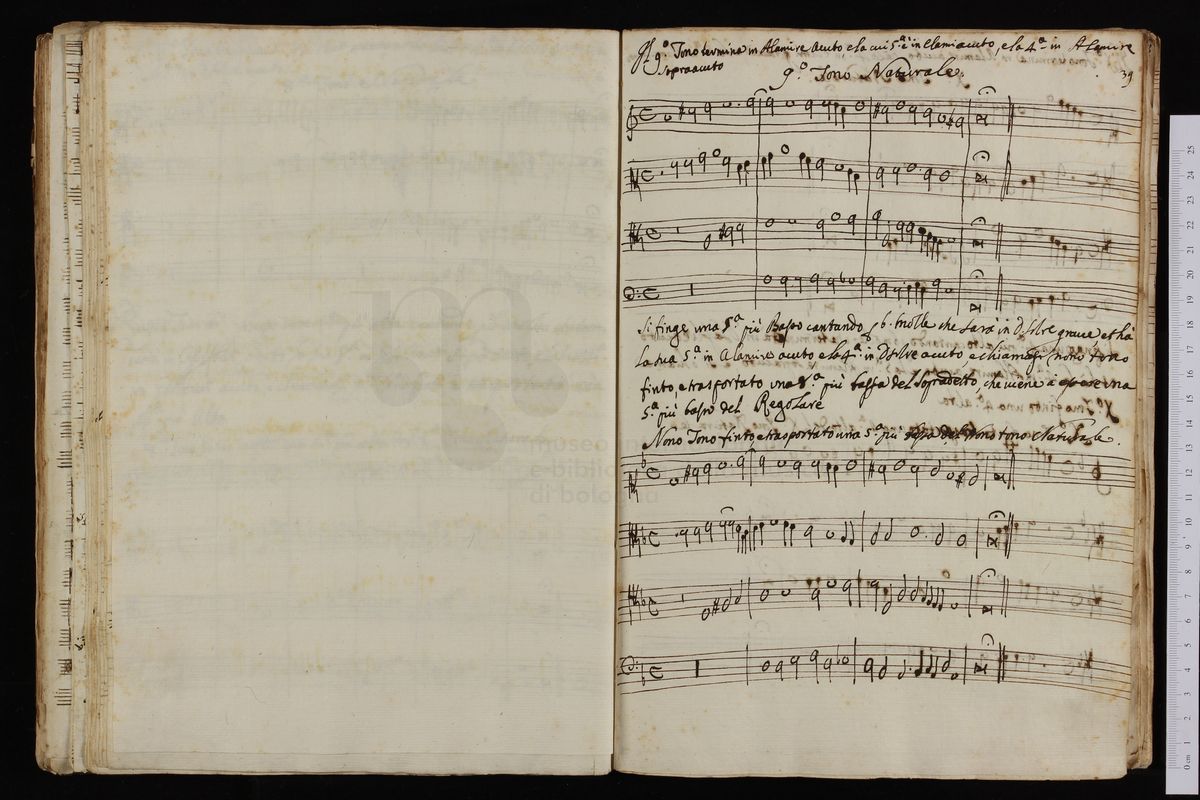 Il 9.º Tono termina in Alamire Acuto e la cui 5.ª è in Elami acuto, e la 4.ª in Alamire
sopraacuto
39
9.º Tono Naturale.
Si finge una 5.ª più Basso cantando p b. molle che sara in D. solre graue, et hà
la sua 5.ª in Alamire acuto e la 4.ª in D solre acuto e chiamasi nono tono
finto, e trasportato una 8.ª più bassa del Sopradetto, che uiene à essere una
5.ª più basso del Regolare
Nono Tono finto e trasportato una 5.ª più bassa del Nono tono Naturale.
museo
e biblio
di bologna
0 cm 1 2 3 4 5 6 7 8 9 10 11 12 13 14 15 16 17 18 19 20 21 22 23 24 25